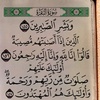 سورة البقرة
وَبَشِّرِ ٱلصَّٰبِرِينَ ١٥٥
ٱلَّذِينَ إِذَآ أَصَٰبَتْهُم مُّصِيبَةٌ
قَالُوٓا۟ إِنَّا لِلَّهِ وَإِنَّآ إِلَيْهِ رَٰجِعُونَ ١٥٦
أُو۟لَٰٓئِكَ عَلَيْهِمْ
صَلَوَٰتٌ مِّن رَّبِّهِمْ وَرَحْمَةٌ
وَأُو۟لَٰٓئِكَ هُمُ ٱلْمُهْتَدُونَ ١٥٧